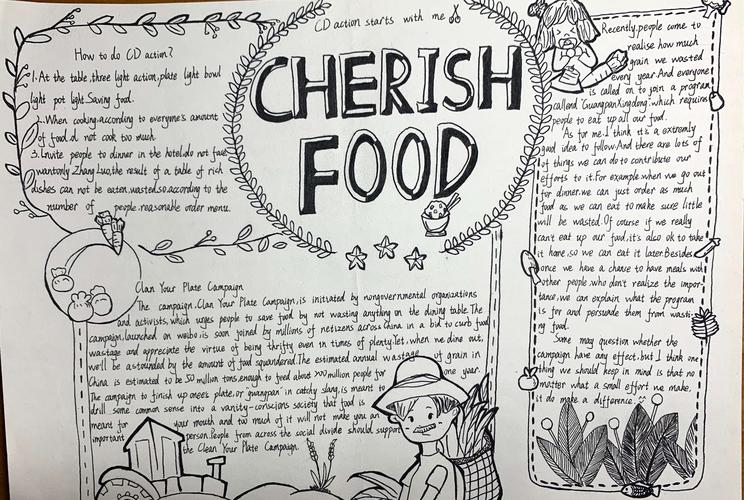 CD action starts with me
CHERISH
FOOD
How to do CD action?
1.At the table,three light action,plate light bowl
light pot light.Saving food.
2.When cooking,according to everyone's amount
of food.d not cook too much.
3.Invite people to dinner in the hotel.do not
wantonly Zhang Luo,the result of a table of rich
dishes can not be eaten,wasted,so,according to the
number of people.reasonable order menu.
Clan Your Plate Campaign
The campaign,Clan Your Plate Campaign,is initiated by nongovernmental organizations
and activists,which urges people to save food by not wasting anything on the dining table.The
campaign,launched on weibo,is soon joined by millions of netizens across China in a bid to curb food
wastage and appreciate the virtue of being thrifty even in times of plenty.let,when we dine out,
we'll be astounded by the amount of food squandered.The estimated annual wastage of grain in
China is estimated to be 50 million tons,enough to feed about 200 million people for one year.
The campaign to finish up one's plate,or guangpan in catchy slang,is meant to
drill some common sense into a vanity-conscions society that food is
meant for your mouth and too much of it will not make you an
important person.People from across the social divide should support
the Clean Your Plate Campaign.
Recently,people come to
realise how much
grain we wasted
every year.And everyone
is called on to join a program
callend "Guangpan Kingdong",which requires
people to eat up all our food.
As for me.I think it's a extremly
good idea to follow.And there are lots of
of things we can do to contribute our
efforts to it.For example.when we go out
for dinner.we can just order as much
food as we can eat to make sure little
will be wasted.Of course if we really
can't eat up our food,it's also ok to take
it home,so we can eat it later.Besides
once we have a chance to have meals with
other people who don't realize the impor-
tance,we can explain what the program
is for and persuade them from wasti-
ng food.
Some may question whether the
campaign have any effect.but I think one
thing we should keep in mind is that no
matter what a small effort we make,
it do make a difference.